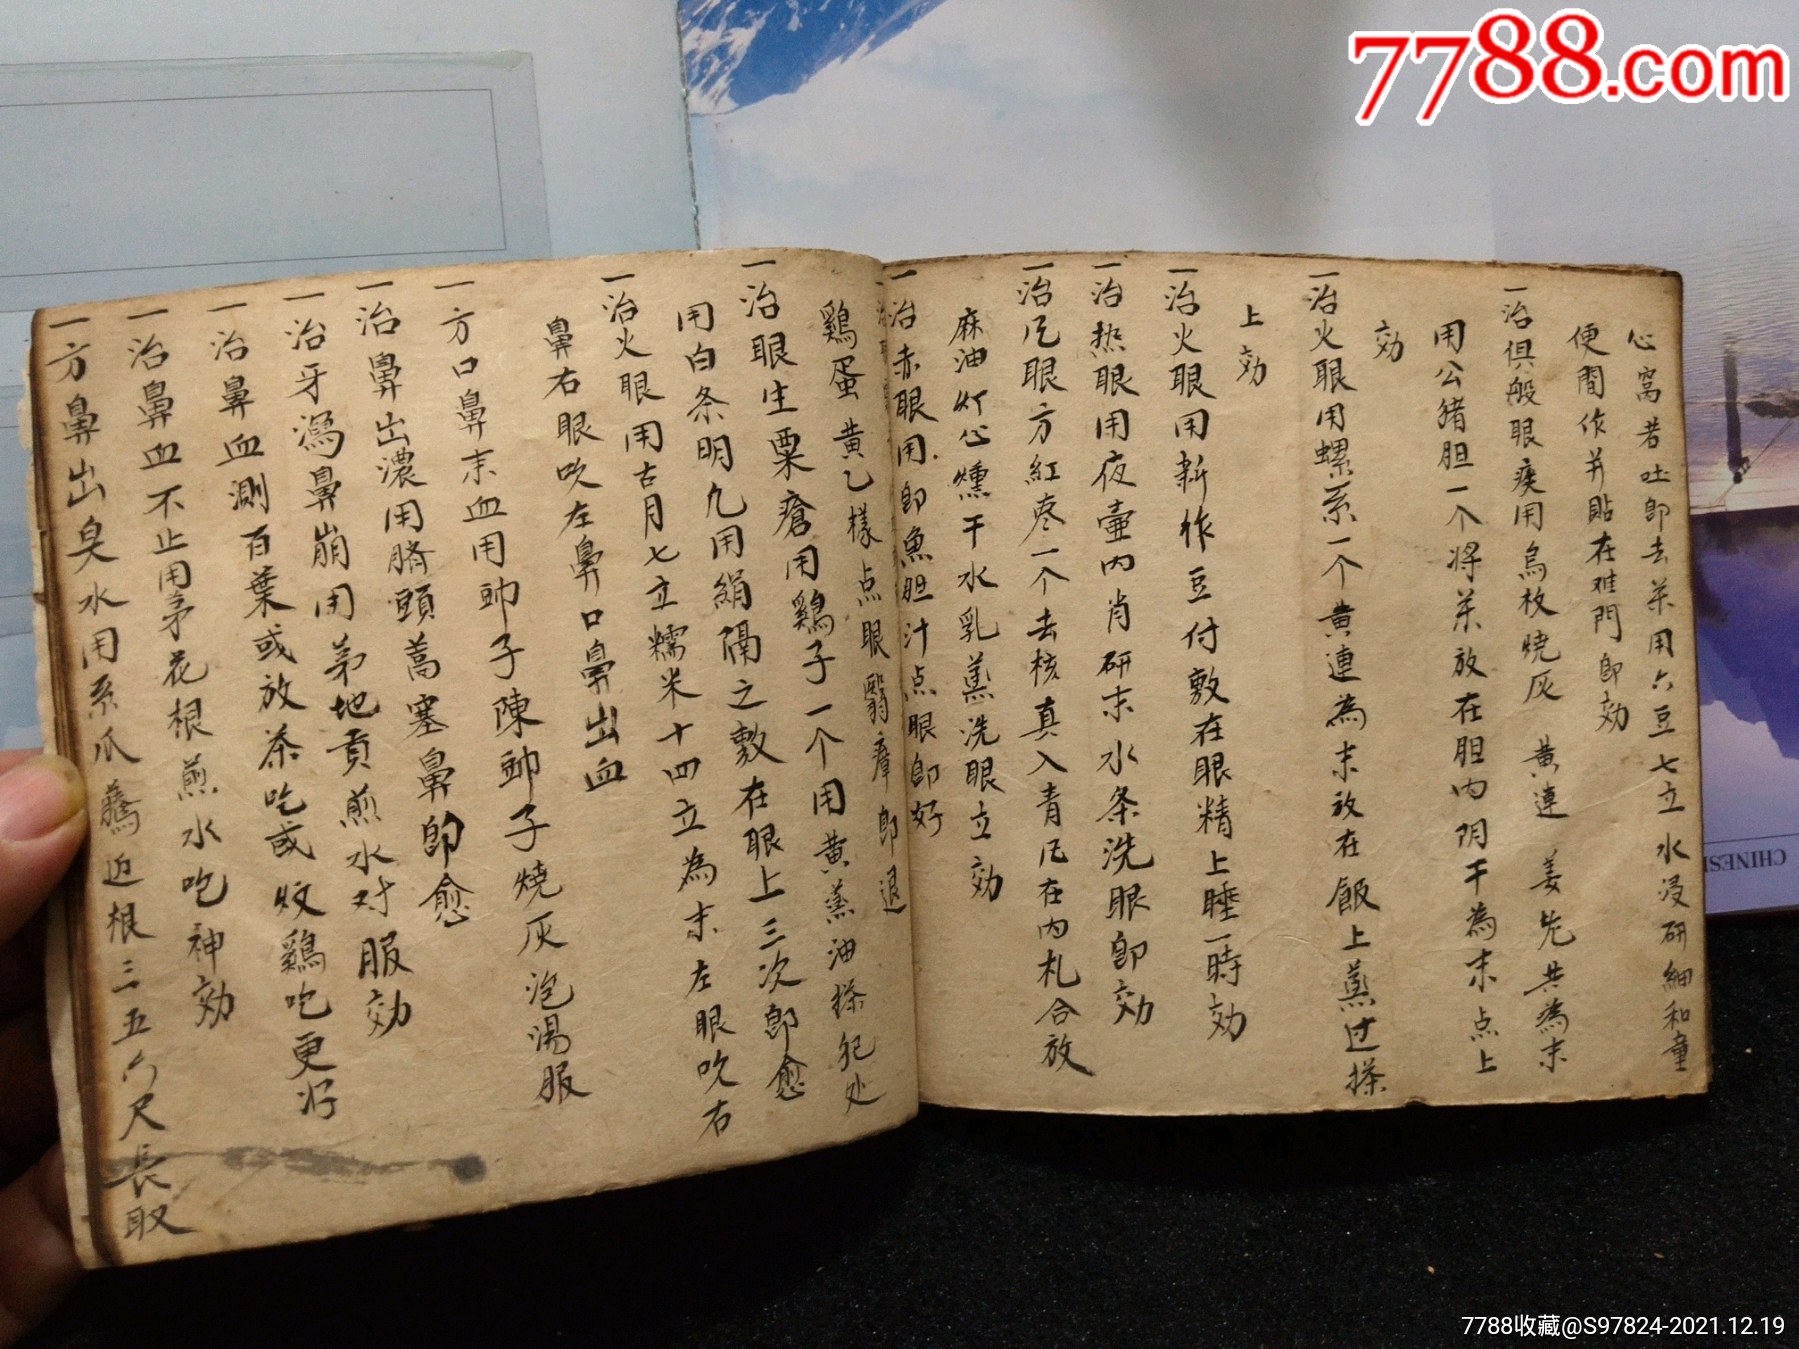 7788.com
心窩若吐即去茱用六豆七立水浸研細和童
便間作并貼在难門即効
一治俱般眼疾用烏枚燒灰 黄連 姜先共為末
用公豬胆一个将茱放在胆内阴干為末点上
効
一治火眼用螺系一个黄連為末放在飯上蒸过搽
上効
一治火眼用新作豆付敷在眼精上睡一時効
一治热眼用夜壶内肖研末水条洗眼即効
一治凡眼方紅枣一个去核真入青凡在内札合放
麻油灯心燻干水乳蒸洗眼立効
一治赤眼用即魚胆汁点眼即好
鷄蛋黄乙樣点眼翳瘴即退
一治眼生粟瘡用鷄子一个用黄蒸油搽犯处
用白条明九用絹隔之敷在眼上三次即愈
一治火眼用古月七立糯米十四立為末左眼吹右
鼻右眼吹左鼻口鼻出血
一方口鼻末血用 子陳 子燒灰泡湯服
一治鼻出濃用臍頭蒿塞鼻即愈
一治牙馮鼻崩用弟地貢煎水对服効
一治鼻血測百葉或放茶吃或炆鷄吃更好
一治鼻血不止用茅花根煎水吃神効
一方鼻出臭水用系爪藤近根三五六尺長取
CHINESE
7788收藏@S97824-2021.12.19